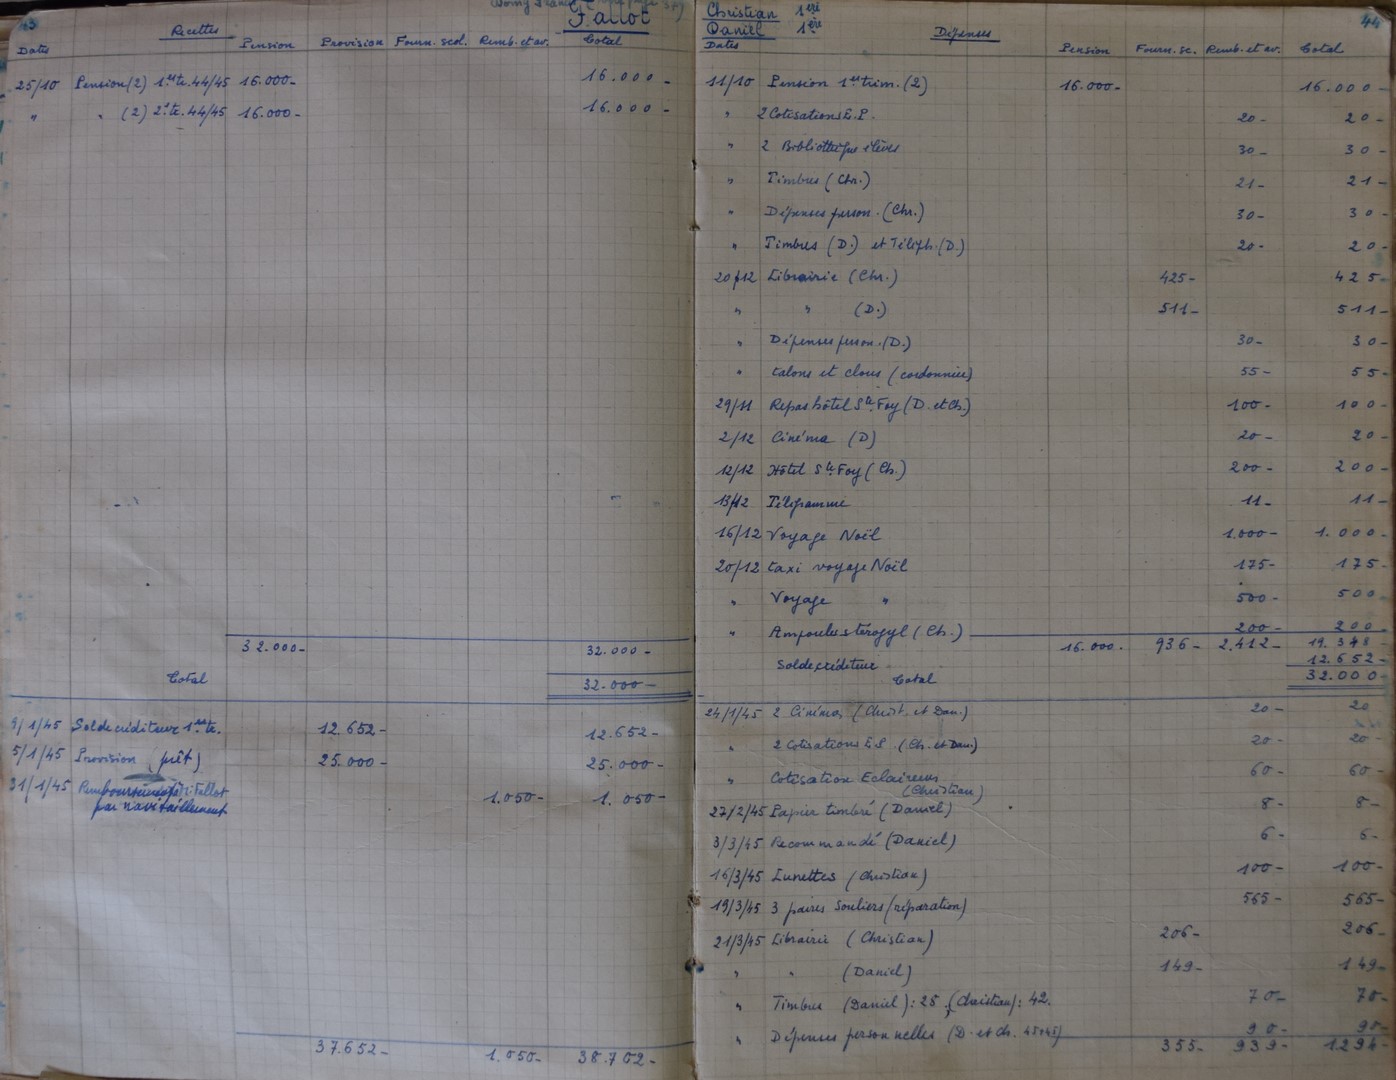 43
Fallot
Recettes
Dates Pension Provision Fourn. scol. Remb. et av. Total
25/10 Pension (2) 1er te. 44/45 16.000- 16.000-
" " (2) 2e te. 44/45 16.000- 16.000-
32.000- 32.000-
Total 32.000-
9/1/45 Solde créditeur 1er te. 12.652- 12.652-
5/1/45 Provision (prêt) 25.000- 25.000-
31/1/45 Fallot 1.050- 1.050-
par ravitaillement
37.652- 1.050- 38.702-
Christian 1ère
Daniel 1ère
44
Dépenses
Dates Pension Fourn. sc. Remb. et av. Total
11/10 Pension 1er trim. (2) 16.000- 16.000-
" 2 Cotisations E.P. 20- 20-
" 2 Bibliothèque élèves 30- 30-
" Timbres (Chr.) 21- 21-
" Dépenses person. (Chr.) 30- 30-
" Timbres (D.) et Téléph. (D.) 20- 20-
20/12 Librairie (Chr.) 425- 425-
" " (D.) 511- 511-
" Dépenses person. (D.) 30- 30-
" talons et clous (cordonnier) 55- 55-
29/11 Repas hôtel Ste Foy (D. et Ch.) 100- 100-
2/12 Cinéma (D) 20- 20-
12/12 Hôtel Ste Foy (Ch.) 200- 200-
13/12 Télégramme 11- 11-
16/12 Voyage Noël 1.000- 1.000-
20/12 taxi voyage Noël 175- 175-
" Voyage " 500- 500-
" Ampoules stérogyl (Ch.) 200- 200
16.000. 936- 2.412- 19.348-
Solde créditeur 12.652-
Total 32.000-
24/1/45 2 Cinémas (Christ. et Dan.) 20- 20
" 2 Cotisations E.P. (Ch. et Dan.) 20- 20-
" Cotisation Eclaireurs 60- 60-
(Christian)
27/2/45 Papier timbré (Daniel) 8- 8-
3/3/45 Recommandé (Daniel) 6- 6-
16/3/45 Lunettes (Christian) 100- 100-
19/3/45 3 paires souliers (réparation) 565- 565-
21/3/45 Librairie (Christian) 206- 206-
" " (Daniel) 149- 149-
" Timbres (Daniel): 25. (Christian): 42. 70- 70-
" Dépenses personnelles (D. et Ch. 45+45) 90- 90-
355- 939- 1.294-